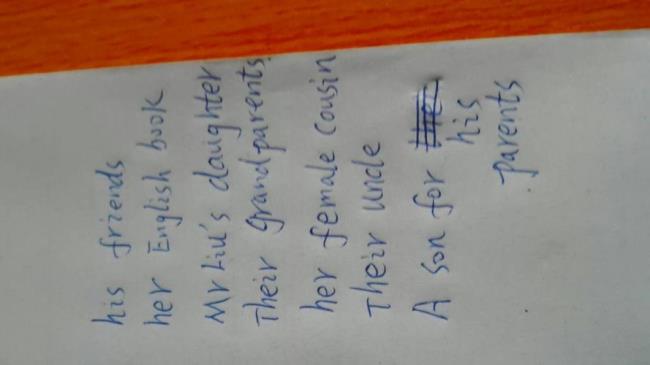 his friends
her English book
Mr Liu's daughter
Their grandparents.
her female cousin
Their uncle
A son for his
parents